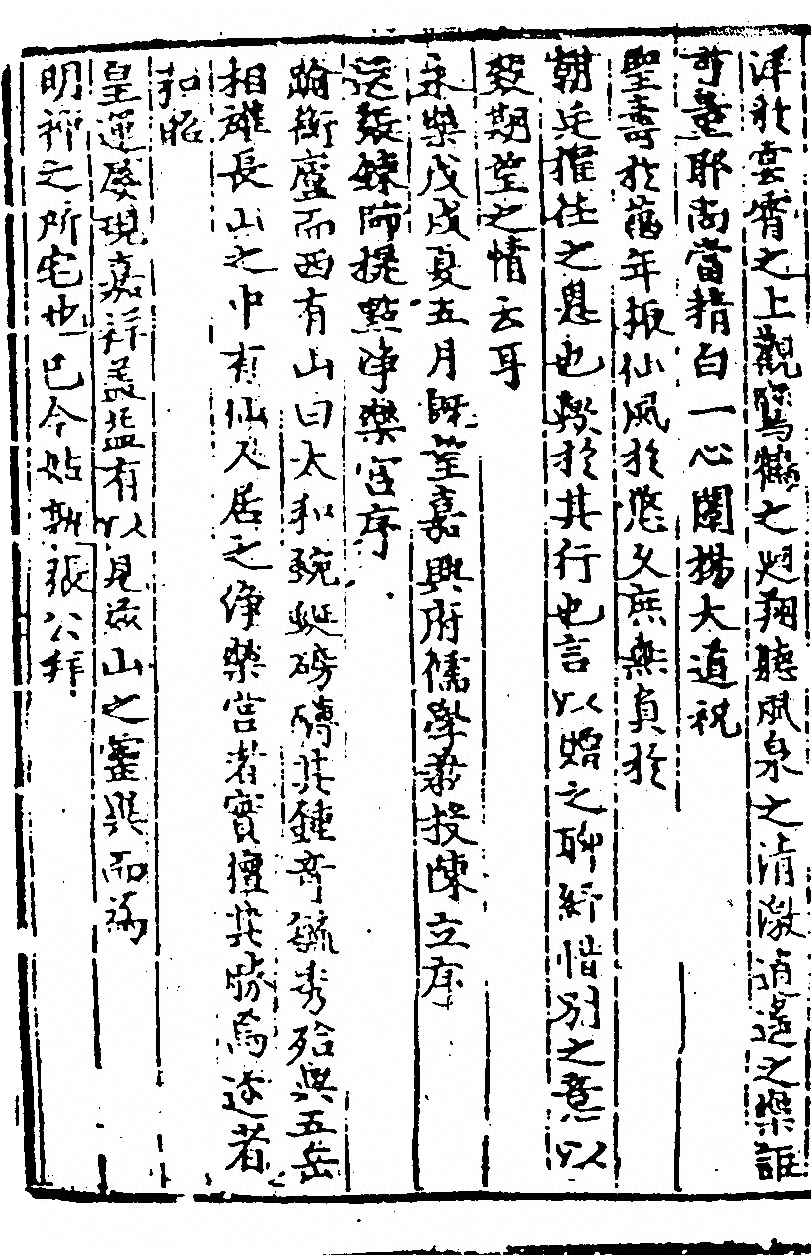 洋於雲霄之上觀鸞鶴之翅翔聽風泉之清激逍遙之樂誰
可量耶尚當精白一心闡揚大道祝
聖壽於萬年振仙風於悠久庶無負於
朝廷擢任之恩也於其行也言以贈之聊紓惜別之意以
致期望之情云耳
永樂戊戌夏五月既望嘉興府儒學教授陳立序
送張鍊師提點淨樂宮序
踰衡廬而西有山曰太和蜿蜒磅礡其鍾奇毓秀殆與五岳
相雄長山之中有仙人居之淨樂宮者實擅其勝焉迩者
和昭
皇運屢現嘉祥盖益有以見茲山之靈與而為
明神之所宅也已今姑蘇張公拜